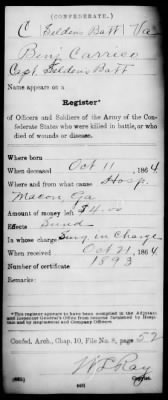 (CONFEDERATE.)
C | Seldens Batt | Va
Benj Carrier
Capt. Seldens Batt
Name appears on a
Register*
of Officers and Soldiers of the Army of the Confederate States who were killed in battle, or who died of wounds or disease.
Where born
When deceased Oct 11, 1864
Where and from what cause Hosp.
Macon, Ga
Amount of money left $4.00
Effects Sund
In whose charge Surg. in Charge
When received Oct 21, 1864
Number of certificate 1893
Remarks:
*This register appears to have been compiled in the Adjutant and Inspector General's Office from returns furnished by Hospitals and by Regimental and Company Officers.
Confed. Arch., Chap. 10, File No. 8, page 52